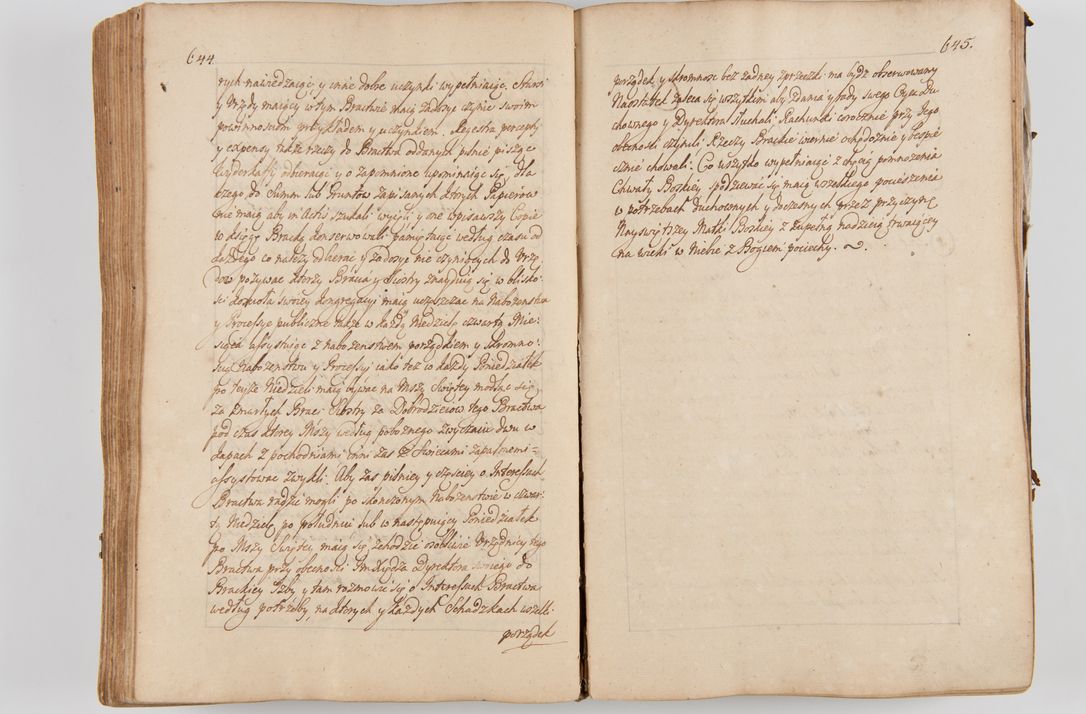 644
rych nawiedzaiąc y inne dobre uczynki wypełniaiąc, Starsi
y Urzędy maiący w tym Bractwie maią zadosyc czynic swoim
powinnosciom przykładem y uczynkiem. Regestra percepty
y expensy także rzeczy do Bractwa oddanych pilnie pisząc
odbieraiąc y o zapomnione upominaiąc się, dla
czego do Summ lub Gruntow zapisanych ktorych Papierow
nie maią aby in Actis szukali wyięli y one wpisawszy Copie
w księgę Bracką konserwowali pamiętaiąc według czasu od
każdego co należy odbierac y zadosyc nie czyniących do Urzę
dow pozywac ktorzy Bracia y Siostry znayduią się w blisko
sci koscioła swoiey kongregacyi maią uczęszczac na Nabożenstwa
y Processye publiczne także w każdą Niedzielę czwartą Mie:
siąca assystuiąc z nabożenstwem porządkiem y skromno:
scią Nabożenstwu y Processyi iako też w każdy Poniedziałek
po teyże Niedzieli maią bywac na Mszy Swiętey modląc się
za zmarłych Braci Siostry za Dobrodzieiow tego Bractwa
pod czas ktorey Mszy według pobożnego zwyczaiu dwu w
kapach z pochodniami inni zas ze Swiecami zapalonemi
assystowac zwykli. Aby zas pilniey y częsciey o Interessach
Bractwa radzic mogli po skonczonym Nabożenstwie w czwar:
tą Niedzielę po południu lub w następuiący Poniedziałek
po Mszy Swiętey maią się zchodzic osobliwie Urzędnicy tego
Bractwa przy obecnosci Jm Xiędza Dyrektora swoiego do
Brackiey Izby y tam rozmowic się o Interessach Bractwa
według potrzeby, na ktorych y każdych Schadzkach wszelki
porządek
645.
porządek y skromnosc bez żadney sprzeczki ma bydz obserwowany
Naostatek zaleca się wszytkim aby zdania y rady swego Oyca Du
chownego y Dyrektora słuchali. Rachunki corocznie przy Jego
obecnosci czynili. Rzeczy Brackie wiernie ochędożnie y bespie
cznie chowali. Co wszytko wypełniaiąc z chęcią pomnożenia
Chwały Boskiey spodziewac się maią wszelkiego pocieszenia
w potrzebach duchownych y doczesnych przez przyczynę
Nayswiętszey Matki Boskiey z zupełną nadzieią trwaiącey
na wieki w Niebie z Bogiem pociechy.